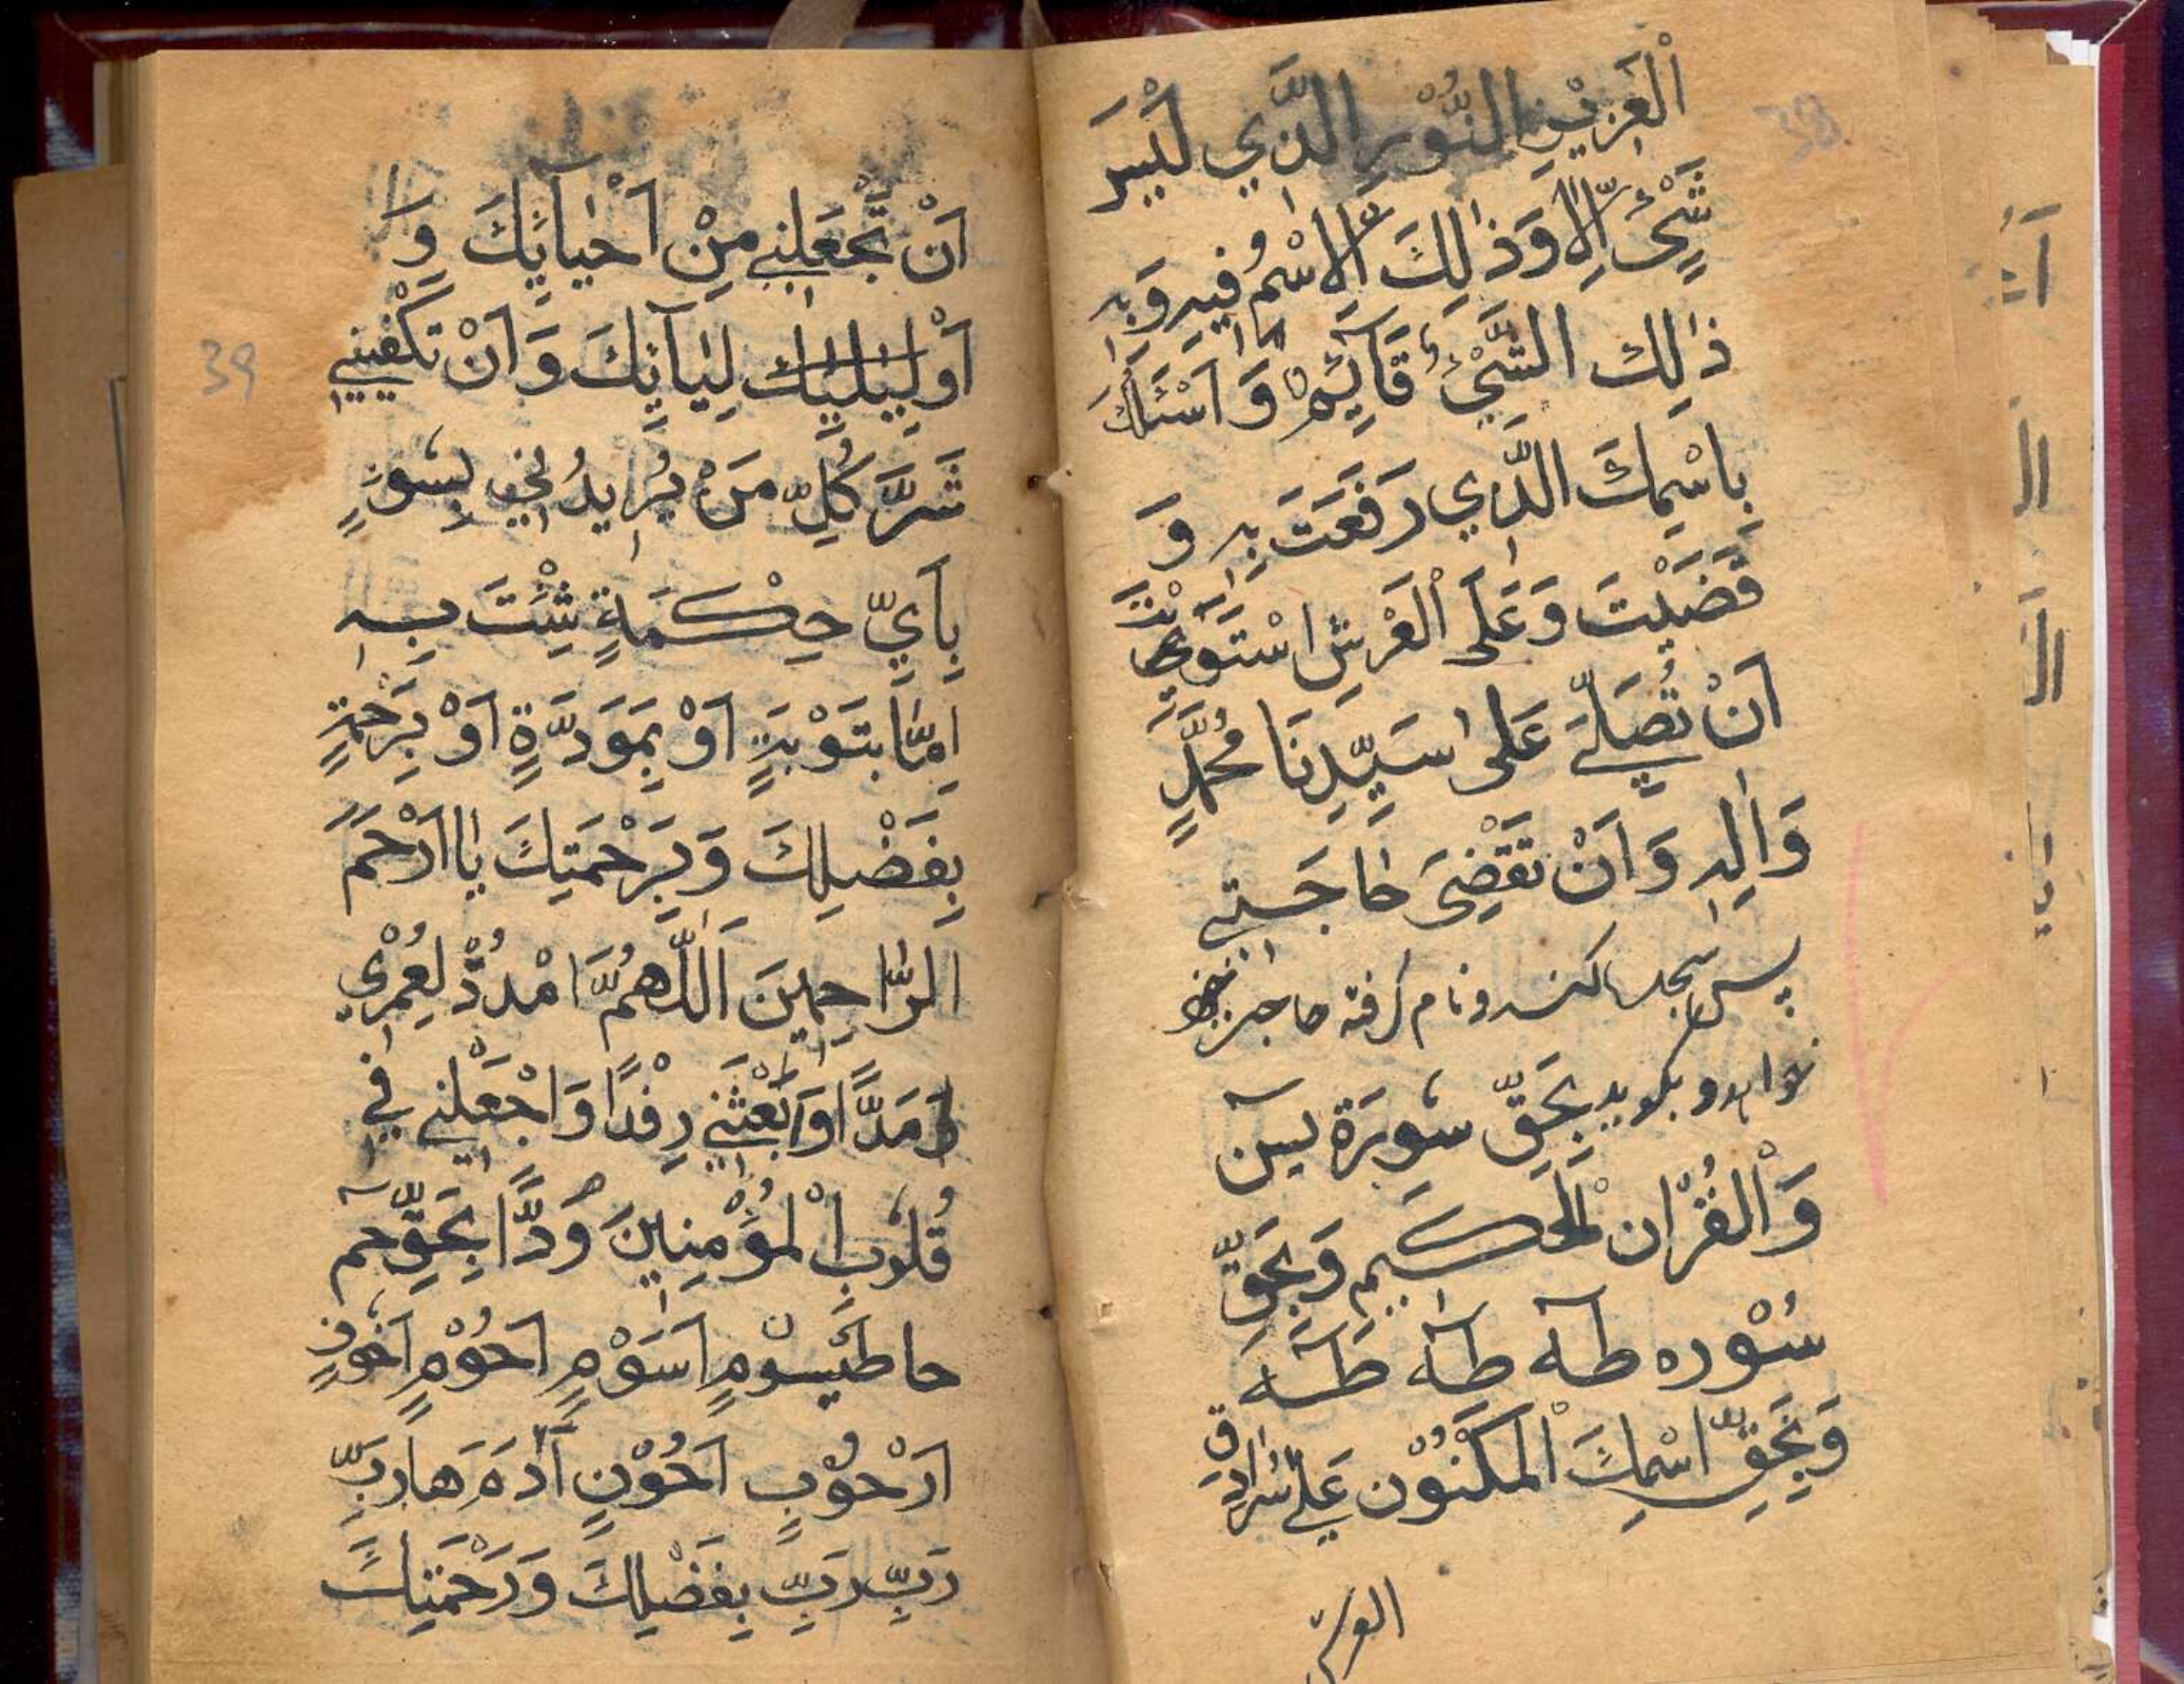 الْعَزِيزِ النُّوْرِ الَّذِي لَيْسَ
شَيْءٌ اِلَّا وَذٰلِكَ الْاِسْمُ فِيهِ وَبِهِ
ذٰلِكَ الشَّيْءُ قَآئِمٌ وَ اَسْئَلُكَ
بِاسْمِكَ الَّذِي رَفَعَتَ بِهِ وَ
قَضَيْتَ وَ عَلَى الْعَرْشِ اسْتَوَيْتَ
اَنْ تُصَلِّيَ عَلٰى سَيِّدِنَا مُحَمَّدٍ
وَ اٰلِهِ وَ اَنْ تَقْضِيَ حٰاجَتِي
پس سجده کند و نام گرفته حاجت
خواهد و بگوید بِحَقِّ سُورَة يٓسٓ
وَالْقُرْاٰنِ الْحَكِيمِ وَ بِحَقِّ
سُوْره طٰهٰ طٰهٰ طٰهٰ
وَ بِحَقِّ اسْمِكَ الْمَكْنُوْنِ عَلٰى سُرَادِق
العرش
38
اَنْ تَجْعَلَنِي مِنْ اَحْيٰآئِكَ وَ
اَوْلِيٰآئِكَ وَ اَنْ تَكْفِيَنِي
39
شَرَّ كُلِّ مَنْ يُرِيدُنِي بِسُوءٍ
بِاَيِّ حِكْمَةٍ شِئْتَ بِهِ
اِمَّا بِتَوْبَةٍ اَوْ بِمَوَدَّةٍ اَوْ بِرَحْمَةٍ
بِفَضْلِكَ وَ بِرَحْمَتِكَ يٰا اَرْحَمَ
الرّٰاحِمِينَ اَللّٰهُمَّ امْدُدْ لِعُمْرِي
مَدًّا وَ ابْعَثْنِي رِفْدًا وَ اجْعَلْنِي فِي
قُلُوبِ الْمُؤْمِنِينَ وُدًّا بِحَقِّ حم
حاطَيْسُوْمٍ اَسَوْمٍ اَحُوْمٍ اَخُونٍ
اَرْحُوْبٍ اَحُوْنٍ اَدَهَ هَا رَبِّ
رَبِّ رَبِّ بِفَضْلِكَ وَ رَحْمَتِكَ